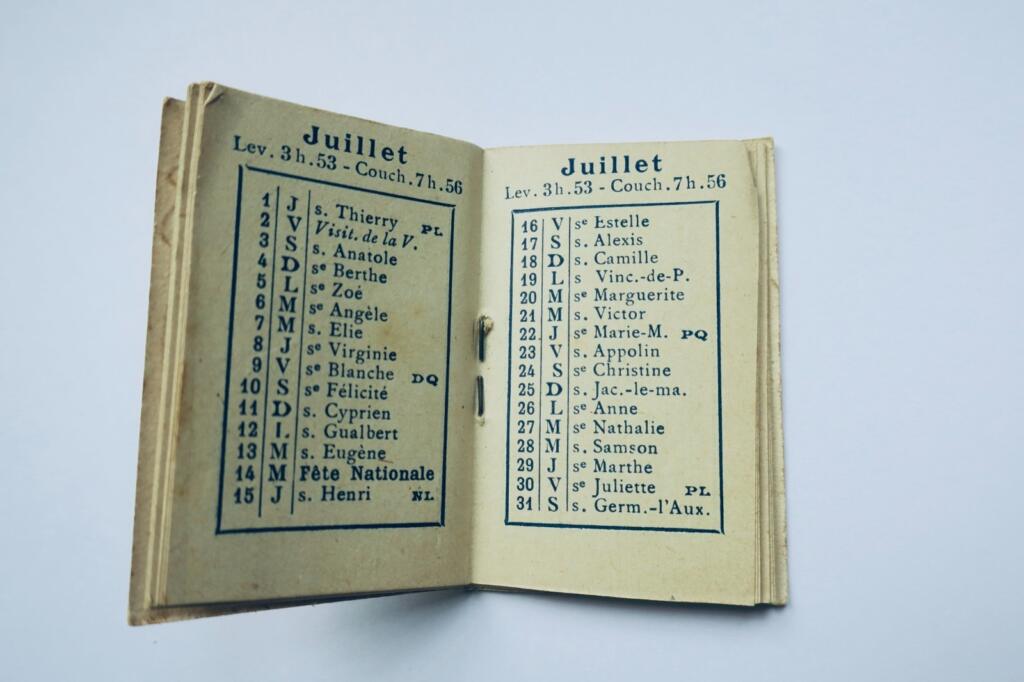 Juillet
Lev. 3h.53 - Couch. 7h.56
1 J s. Thierry PL
2 V Visit. de la V.
3 S s. Anatole
4 D sᵉ Berthe
5 L sᵉ Zoé
6 M sᵉ Angèle
7 M s. Elie
8 J sᵉ Virginie
9 V sᵉ Blanche DQ
10 S sᵉ Félicité
11 D s. Cyprien
12 L s. Gualbert
13 M s. Eugène
14 M Fête Nationale
15 J s. Henri NL
Juillet
Lev. 3h.53 - Couch. 7h.56
16 V sᵉ Estelle
17 S s. Alexis
18 D s. Camille
19 L s Vinc.-de-P.
20 M sᵉ Marguerite
21 M s. Victor
22 J sᵉ Marie-M. PQ
23 V s. Appolin
24 S sᵉ Christine
25 D s. Jac.-le-ma.
26 L sᵉ Anne
27 M sᵉ Nathalie
28 M s. Samson
29 J sᵉ Marthe
30 V sᵉ Juliette PL
31 S s. Germ.-l'Aux.